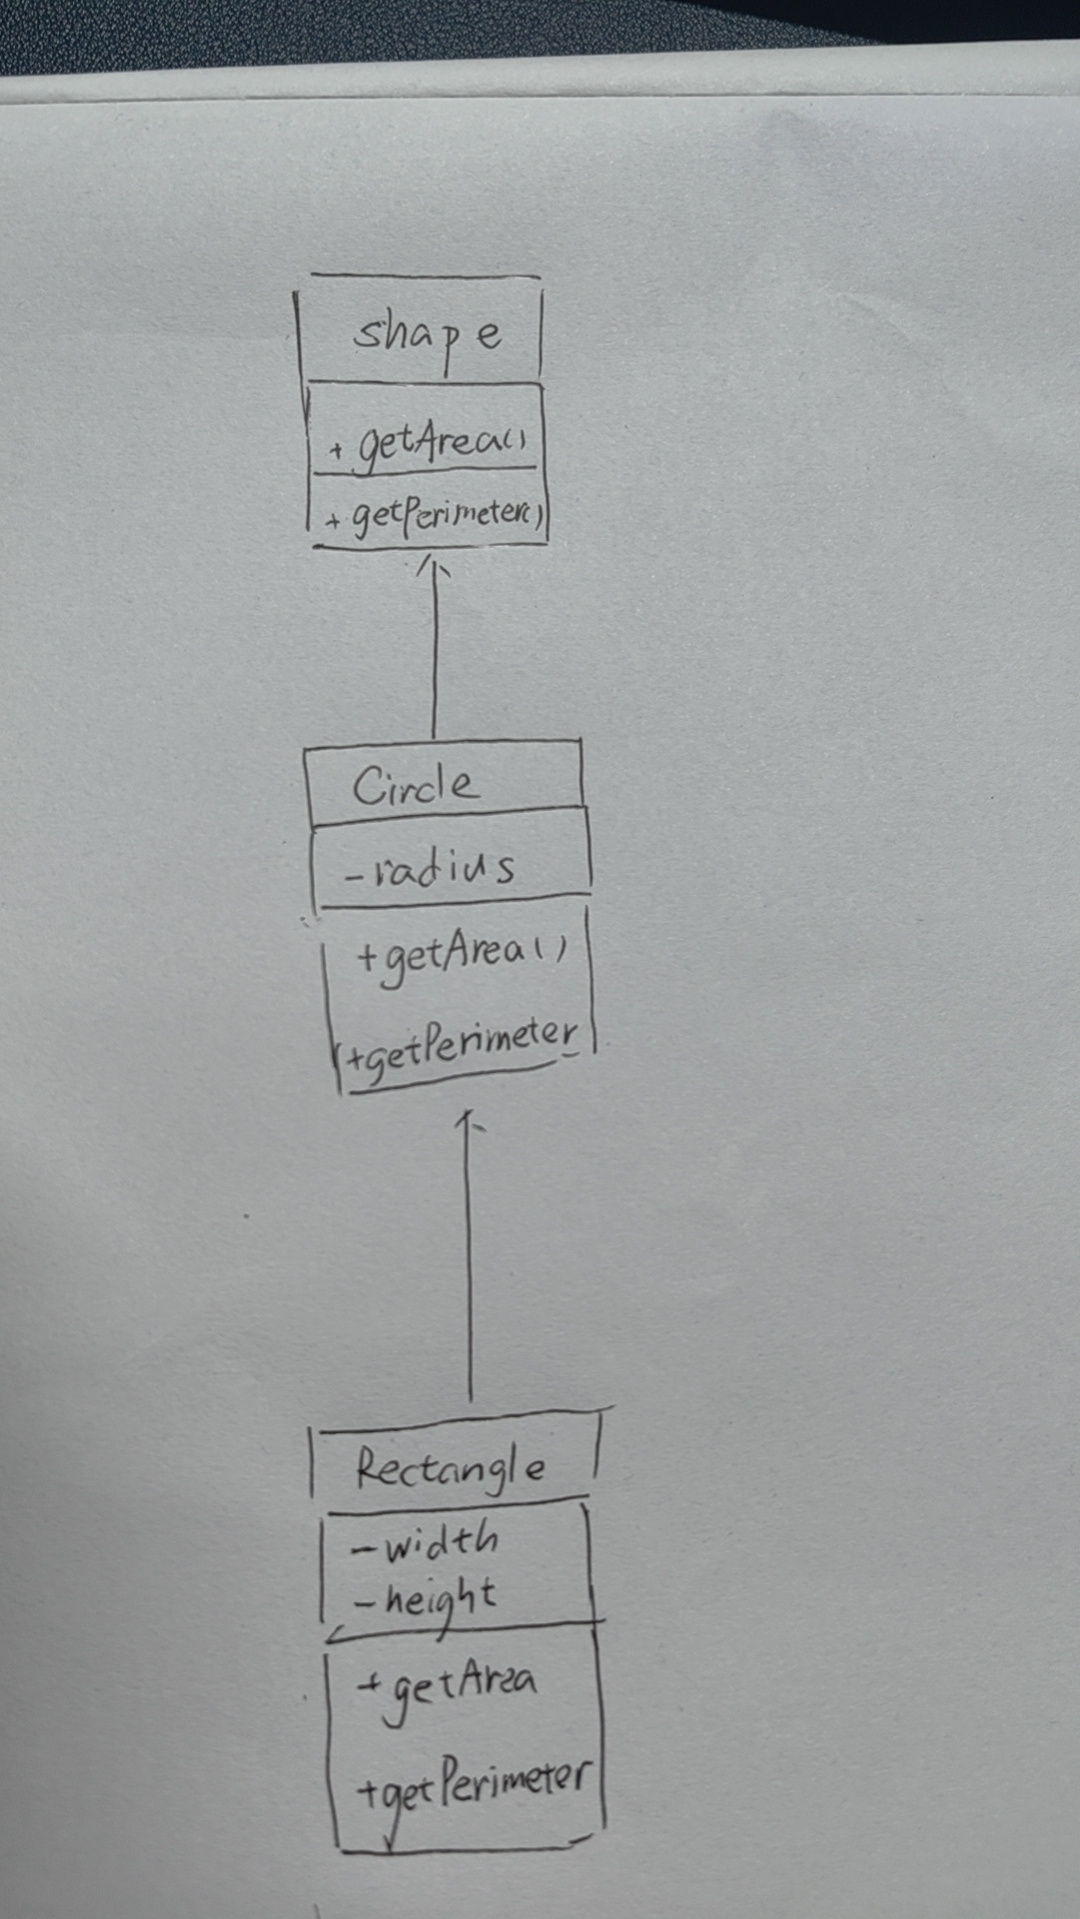 shape
+ getArea()
+ getPerimeter()
Circle
-radius
+getArea()
+getPerimeter
Rectangle
-width
-height
+getArea
+getPerimeter